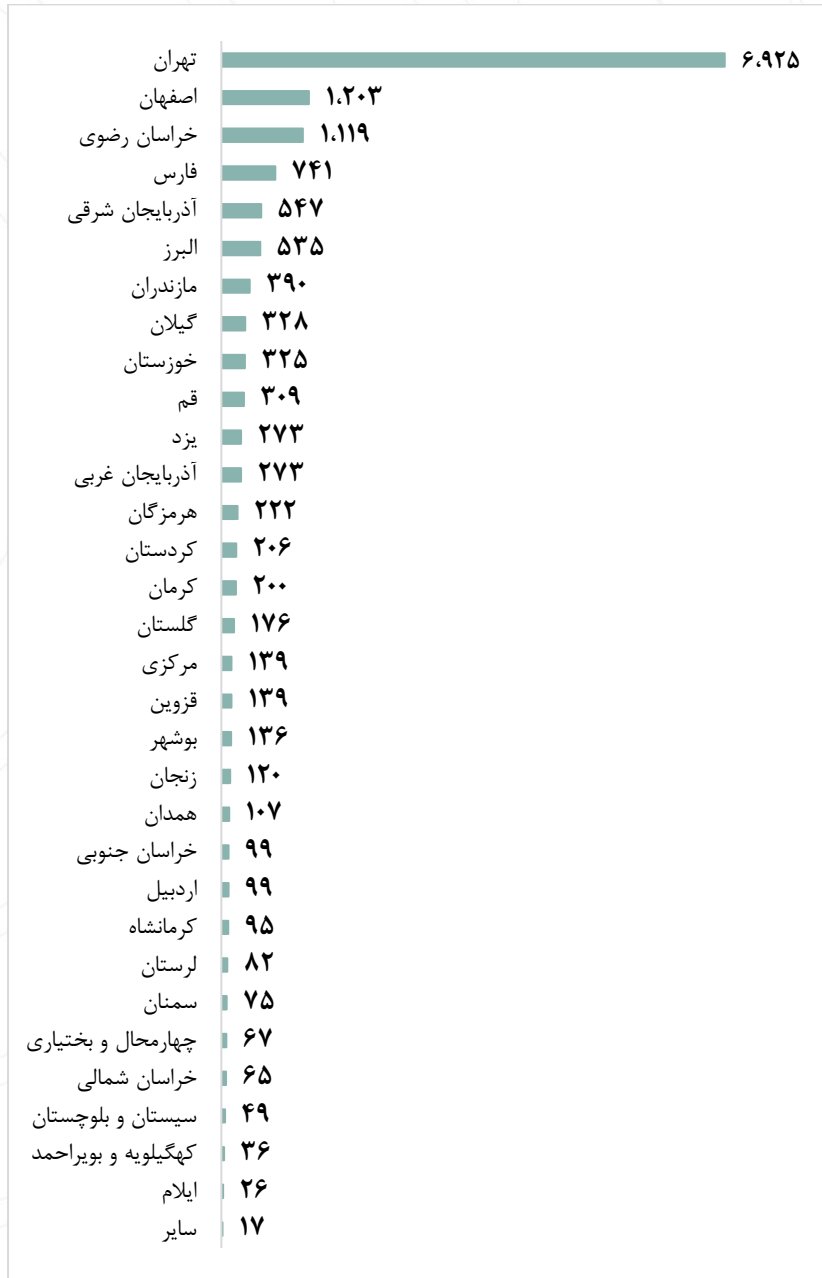 تهران ۶،۹۲۵
اصفهان ۱،۲۰۳
خراسان رضوی ۱،۱۱۹
فارس ۷۴۱
آذربایجان شرقی ۵۴۷
البرز ۵۳۵
مازندران ۳۹۰
گیلان ۳۲۸
خوزستان ۳۲۵
قم ۳۰۹
یزد ۲۷۳
آذربایجان غربی ۲۷۳
هرمزگان ۲۲۲
کردستان ۲۰۶
کرمان ۲۰۰
گلستان ۱۷۶
مرکزی ۱۳۹
قزوین ۱۳۹
بوشهر ۱۳۶
زنجان ۱۲۰
همدان ۱۰۷
خراسان جنوبی ۹۹
اردبیل ۹۹
کرمانشاه ۹۵
لرستان ۸۲
سمنان ۷۵
چهارمحال و بختیاری ۶۷
خراسان شمالی ۶۵
سیستان و بلوچستان ۴۹
کهگیلویه و بویراحمد ۳۶
ایلام ۲۶
سایر ۱۷